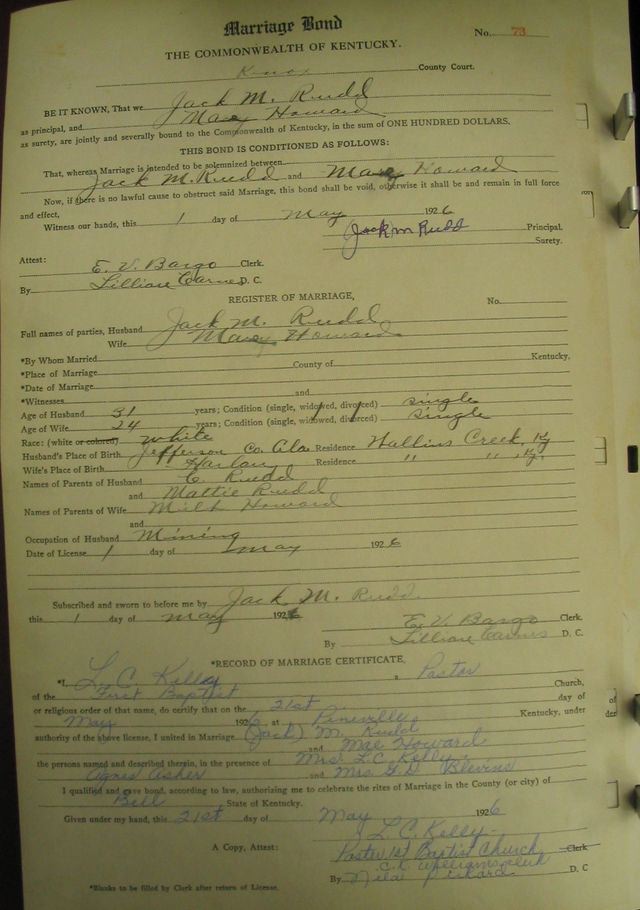 Marriage Bond
No. 73
THE COMMONWEALTH OF KENTUCKY.
Knox County Court.
BE IT KNOWN, That we Jack M. Rudd
as principal, and Mae Howard
as surety, are jointly and severally bound to the Commonwealth of Kentucky, in the sum of ONE HUNDRED DOLLARS.
THIS BOND IS CONDITIONED AS FOLLOWS:
That, whereas Marriage is intended to be solemnized between
Jack M. Rudd and Mae Howard
Now, if there is no lawful cause to obstruct said Marriage, this bond shall be void, otherwise it shall be and remain in full force
and effect,
Witness our hands, this 1 day of May 1926
(Jack) M Rudd Principal.
Surety.
Attest:
E. V. Bargo Clerk.
By Lillian Carnes D. C.
REGISTER OF MARRIAGE,
No.
Full names of parties, Husband Jack M. Rudd
Wife Mae Howard
*By Whom Married
*Place of Marriage County of Kentucky,
*Date of Marriage
*Witnesses and
Age of Husband 31 years; Condition (single, widowed, divorced) single
Age of Wife 24 years; Condition (single, widowed, divorced) single
Race: (white or colored) white
Husband's Place of Birth Jefferson Co. Ala Residence Wallins Creek, Ky
Wife's Place of Birth Harlan Residence " " " Ky.
Names of Parents of Husband C. Rudd
and Mattie Rudd
Names of Parents of Wife Milt Howard
and
Occupation of Husband Mining
Date of License 1 day of May 1926
Subscribed and sworn to before me by Jack M. Rudd.
this 1 day of May 1926
E. V. Bargo Clerk.
By Lillian Carnes D. C.
*RECORD OF MARRIAGE CERTIFICATE,
*I, L. C. Kelly a Pastor
of the First Baptist Church,
or religious order of that name, do certify that on the 21st day of
May 1926 at Pineville Kentucky, under
authority of the above license, I united in Marriage (Jack) M. Rudd
and Mae Howard
the persons named and described therein, in the presence of Mrs. L. C. Kelly,
Agnes Asher and Mrs. G. D. Blevins
I qualified and gave bond, according to law, authorizing me to celebrate the rites of Marriage in the County (or city) of
Bell State of Kentucky.
Given under my hand, this 21st day of May 1926
L. C. Kelly
Pastor 1st Baptist Church Clerk
A Copy, Attest:
C. R. Williams clerk
By D. C
*Blanks to be filled by Clerk after return of License.